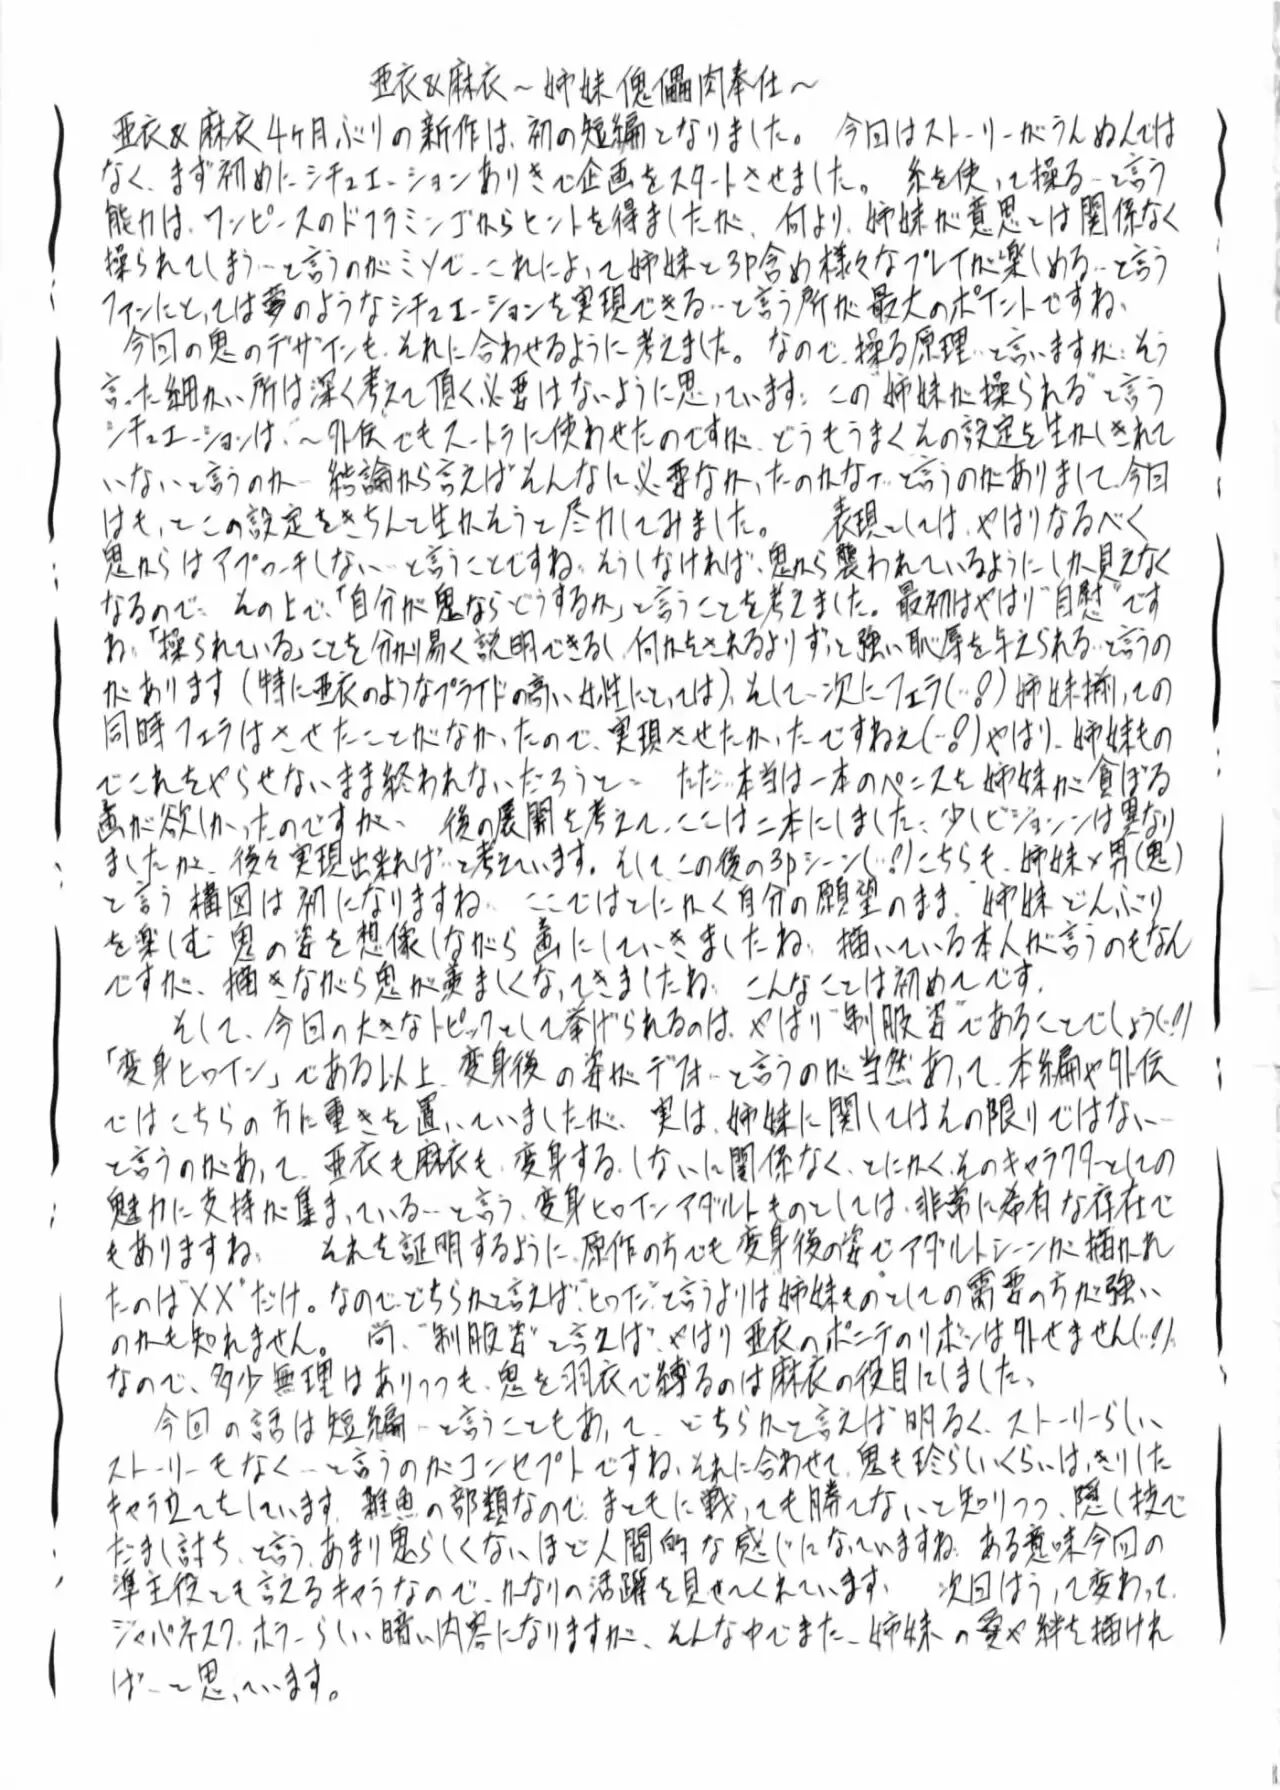 亜衣&麻衣～姉妹傀儡肉奉仕～
亜衣&麻衣4ヶ月ぶりの新作は、初の短編となりました。 今回はストーリーがうんぬんでは
なく、まず初めにシチュエーションありきで企画をスタートさせました。 糸を使って操る…と言う
能力は、ワンピースのドフラミンゴからヒントを得ましたが、何より、姉妹が意思とは関係なく
操られてしまう…と言うのがミソで、これによって姉妹と3P含め様々なプレイが楽しめる…と言う
ファンにとっては夢のようなシチュエーションを実現できる…と言う所が最大のポイントですね、
今回の鬼のデザインも、それに合わせるように考えました。なので、操る原理…と言いますか…そう
言った細かい所は深く考えて頂く必要はないように思っています… この"姉妹が操られる"と言う
シチュエーションは、"～外伝"でもスートラに使わせたのですが、どうもうまくその設定を生かしきれて
いないと言うのか… 結論から言えばそんなに必要なかったのかな…と言うのがありまして、今回
はもっとこの設定をきちんと生かそうと尽力してみました。 表現としては、やはりなるべく
鬼からはアプローチしない…と言うことですね、そうしなければ、鬼から襲われているようにしか見えなく
なるので… その上で、「自分が鬼ならどうするか」と言うことを考えました。最初はやはり"自慰"です
ね、「操られている」ことを分かり易く説明できるし、何かをされるよりずっと強い恥辱を与えられる…と言うの
があります(特に亜衣のようなプライドの高い女性にとっては)、そして次にフェラ(…!)姉妹揃っての
同時フェラはさせたことがなかったので、実現させたかったですねぇ(…!)やはり、姉妹もの
でこれをやらせないまま終われないだろうと… ただ…本当は一本のペニスを姉妹が貪ぼる
画が欲しかったのですが、 後の展開を考えて、ここは二本にしました… 少しビジョンは異なり
ましたが、後々実現出来れば…と考えています。そしてこの後の3Pシーン(…!)こちらも、姉妹×男(鬼)
と言う構図は初になりますね、 ここではとにかく自分の願望のまま、"姉妹どんぶり"
を楽しむ鬼の姿を想像しながら画にしていきましたね、描いている本人が言うのもなん
ですが、描きながら鬼が羨ましくなってきましたね、こんなことは初めてです、
そして、今回の大きなトピックとして挙げられるのは、やはり"制服姿"であることでしょう(…!)
「変身ヒロイン」である以上、変身後の姿がデフォ…と言うのが当然あって、本編や外伝
ではこちらの方に重きを置いていましたが、実は、姉妹に関してはその限りではない…
と言うのがあって、亜衣も麻衣も、変身する、しないに関係なく、とにかく、そのキャラクターとしての
魅力に支持が集まっている…と言う、変身ヒロインアダルトものとしては、非常に希有な存在で
もありますね、 それを証明するように、原作のうちでも変身後の姿でアダルトシーンが描かれ
たのは"XX"だけ。なので、どちらかと言えば、"ヒロイン"と言うよりは姉妹ものとしての需要の方が強い
のかも知れません。 尚、"制服姿"と言えば、やはり亜衣のポニテのリボンは外せません(…!)、
なので、多少無理はありつつも、鬼を羽衣で縛るのは麻衣の役目にしました、
今回の話は短編…と言うこともあって、どちらかと言えば明るく、ストーリーらしい
ストーリーもなく…と言うのがコンセプトですね、それに合わせて、鬼も珍らしいくらいはっきりした
キャラ立てをしています、雑魚の部類なので、まともに戦っても勝てないと知りつつ、隠し技で
だまし討ち、と言う、あまり鬼らしくないほど人間的な感じになっていますね、ある意味今回の
準主役とも言えるキャラなので、かなりの活躍を見せてくれています、 次回はうって変わって、
ジャパネスク、ホラーらしい暗い内容になりますが、そんな中でまた、姉妹の愛や絆を描けれ
ば…と思っています。